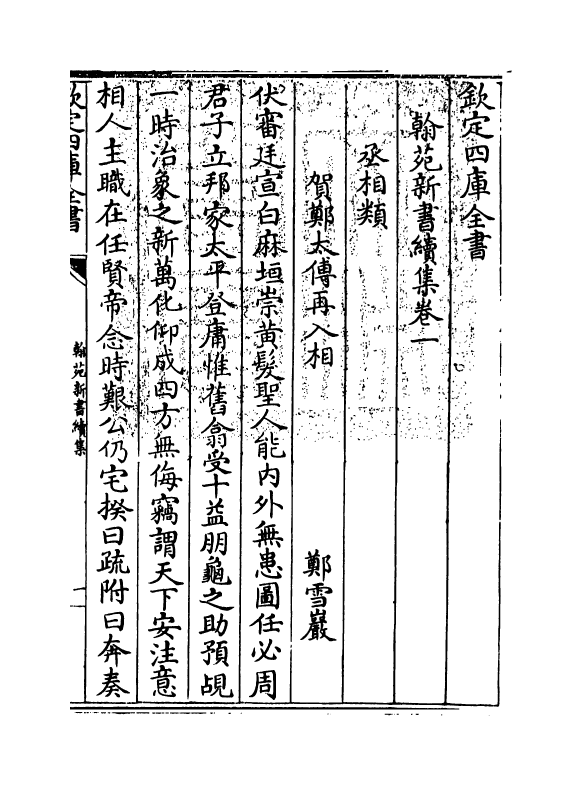 欽定四庫全書
翰苑新書續集卷一
丞相類
賀鄭太傅再入相
鄭雪巖
伏審廷宣白麻垣崇黄髮聖人能内外無患圖任必周
君子立邦家太平登庸惟舊翕受十益朋龜之助預覘
一時治象之新萬化仰成四方無侮竊謂天下安注意
相人主職在任賢帝念時艱公仍宅揆曰疏附曰奔奏
欽定四庫全書
翰苑新書續集
一